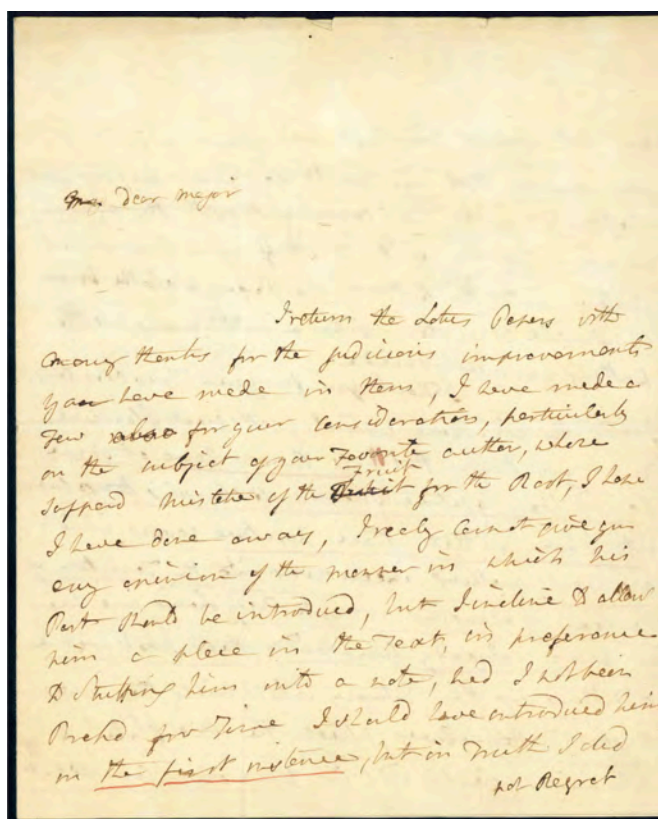 My dear Major
I return the Lotus Papers with
many thanks for the judicious improvements
you have made in them, I have made a
Few also for your Consideration, particularly
on the subject of your Favorite author, whose
Fruit
supposd mistake of the for the Root, I hope
I have done away, I realy Cannot give you
any opinion of the manner in which his
Part should be introduced, but I incline to allow
him a place in the Text, in preference
to Stuffing him into a note, had I not been
Presd for Time I should have introduced him
in the first instance, but in Truth I did
not Regret